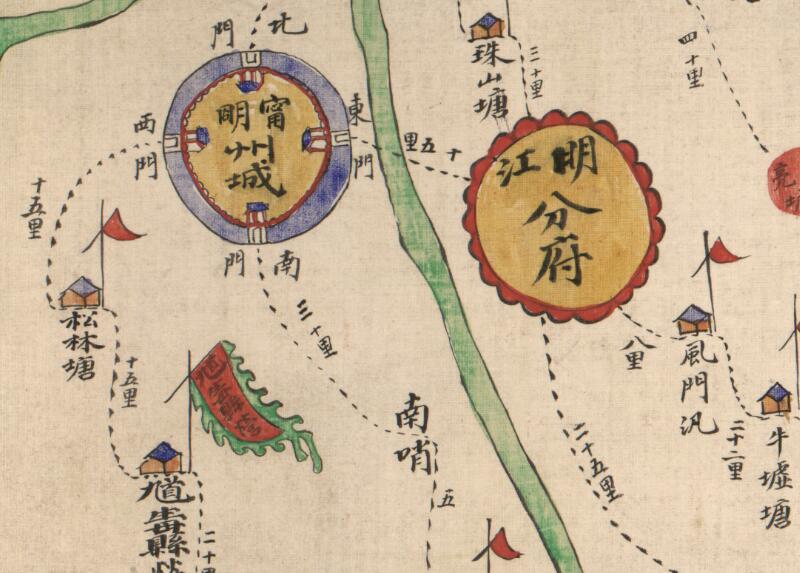 北門
甯明州城
東門
西門
南門
珠山塘
三十里
四十里
明江分府
十五里
十五里
松林塘
十五里
三十里
南哨
五
八里
風門汛
二十二里
牛墟塘
二十五里
二十里
亮